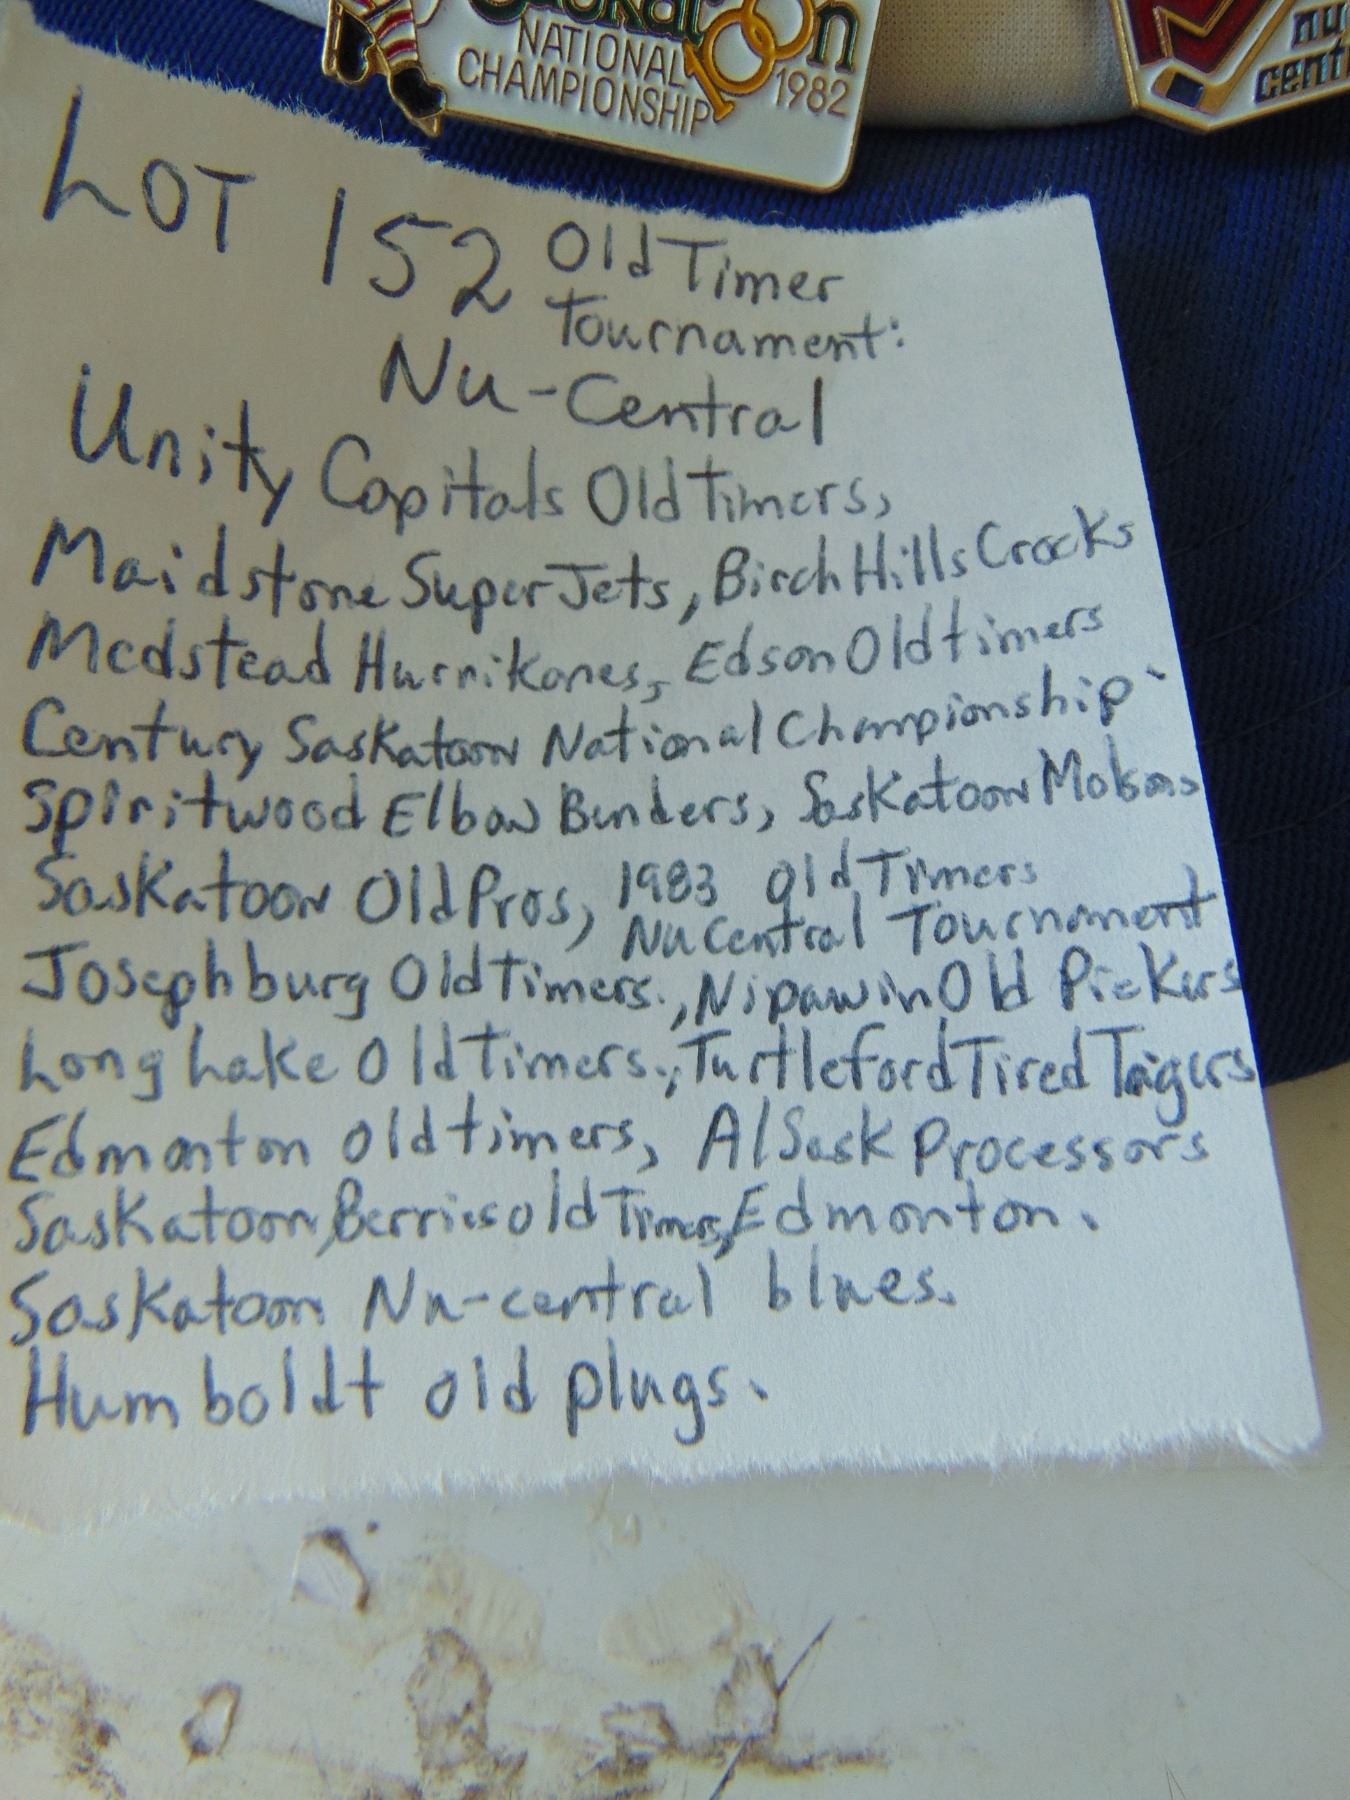 Saskatoon
NATIONAL 100
CHAMPIONSHIP 1982
nu
cent
LOT 152 Old Timer
Tournament:
Nu-Central
Unity Capitals Old Timers,
Maidstone Super Jets, Birch Hills Crocks
Medstead Hurrikanes, Edson Oldtimers
Century Saskatoon National Championship
Spiritwood Elbow Benders, Saskatoon
Saskatoon Old Pros, 1983 Old Timers
Nu Central Tournament
Josephburg Old Timers., Nipawin Old Pickers
Long Lake Old Timers., Turtleford Tired Tigers
Edmonton old timers, AlSask Processors
Saskatoon, Berries old Timers, Edmonton.
Saskatoon Nu-central blues.
Humboldt old plugs.